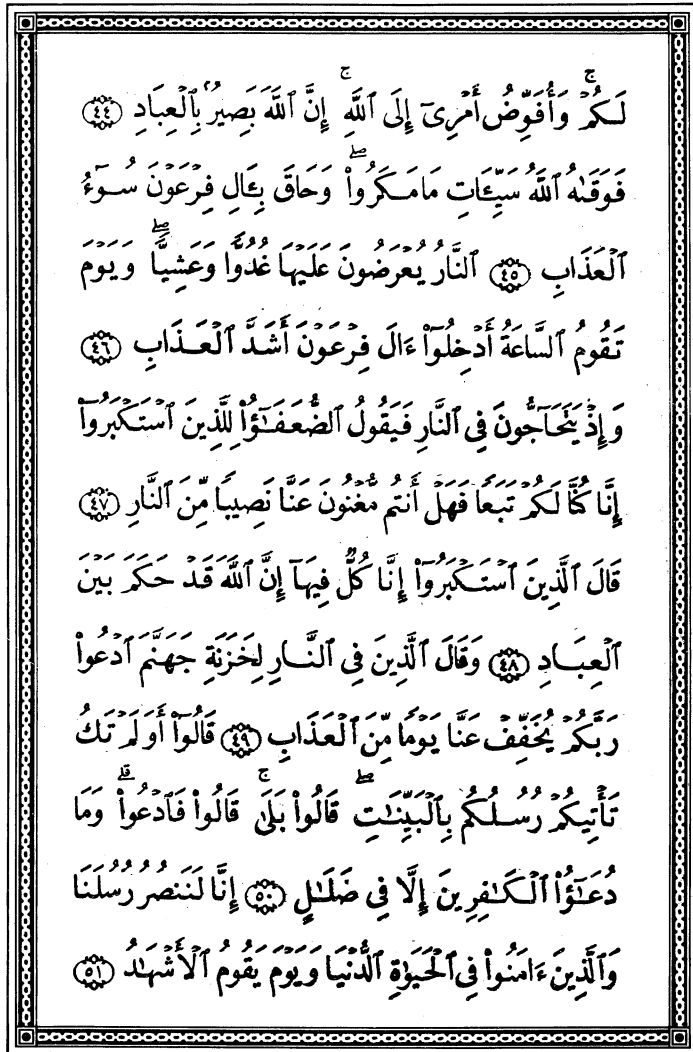 لَكُمْ ۚ وَأُفَوِّضُ أَمْرِىٓ إِلَى ٱللَّهِ ۚ إِنَّ ٱللَّهَ بَصِيرٌۢ بِٱلْعِبَادِ ﴿٤٤﴾
فَوَقَىٰهُ ٱللَّهُ سَيِّـَٔاتِ مَا مَكَرُوا۟ ۖ وَحَاقَ بِـَٔالِ فِرْعَوْنَ سُوٓءُ
ٱلْعَذَابِ ﴿٤٥﴾ ٱلنَّارُ يُعْرَضُونَ عَلَيْهَا غُدُوًّا وَعَشِيًّا ۖ وَيَوْمَ
تَقُومُ ٱلسَّاعَةُ أَدْخِلُوٓا۟ ءَالَ فِرْعَوْنَ أَشَدَّ ٱلْعَذَابِ ﴿٤٦﴾
وَإِذْ يَتَحَآجُّونَ فِى ٱلنَّارِ فَيَقُولُ ٱلضُّعَفَـٰٓؤُا۟ لِلَّذِينَ ٱسْتَكْبَرُوٓا۟
إِنَّا كُنَّا لَكُمْ تَبَعًا فَهَلْ أَنتُم مُّغْنُونَ عَنَّا نَصِيبًا مِّنَ ٱلنَّارِ ﴿٤٧﴾
قَالَ ٱلَّذِينَ ٱسْتَكْبَرُوٓا۟ إِنَّا كُلٌّ فِيهَآ إِنَّ ٱللَّهَ قَدْ حَكَمَ بَيْنَ
ٱلْعِبَادِ ﴿٤٨﴾ وَقَالَ ٱلَّذِينَ فِى ٱلنَّارِ لِخَزَنَةِ جَهَنَّمَ ٱدْعُوا۟
رَبَّكُمْ يُخَفِّفْ عَنَّا يَوْمًا مِّنَ ٱلْعَذَابِ ﴿٤٩﴾ قَالُوٓا۟ أَوَلَمْ تَكُ
تَأْتِيكُمْ رُسُلُكُم بِٱلْبَيِّنَـٰتِ ۖ قَالُوا۟ بَلَىٰ ۚ قَالُوا۟ فَٱدْعُوا۟ ۗ وَمَا
دُعَـٰٓؤُا۟ ٱلْكَـٰفِرِينَ إِلَّا فِى ضَلَـٰلٍ ﴿٥٠﴾ إِنَّا لَنَنصُرُ رُسُلَنَا
وَٱلَّذِينَ ءَامَنُوا۟ فِى ٱلْحَيَوٰةِ ٱلدُّنْيَا وَيَوْمَ يَقُومُ ٱلْأَشْهَـٰدُ ﴿٥١﴾